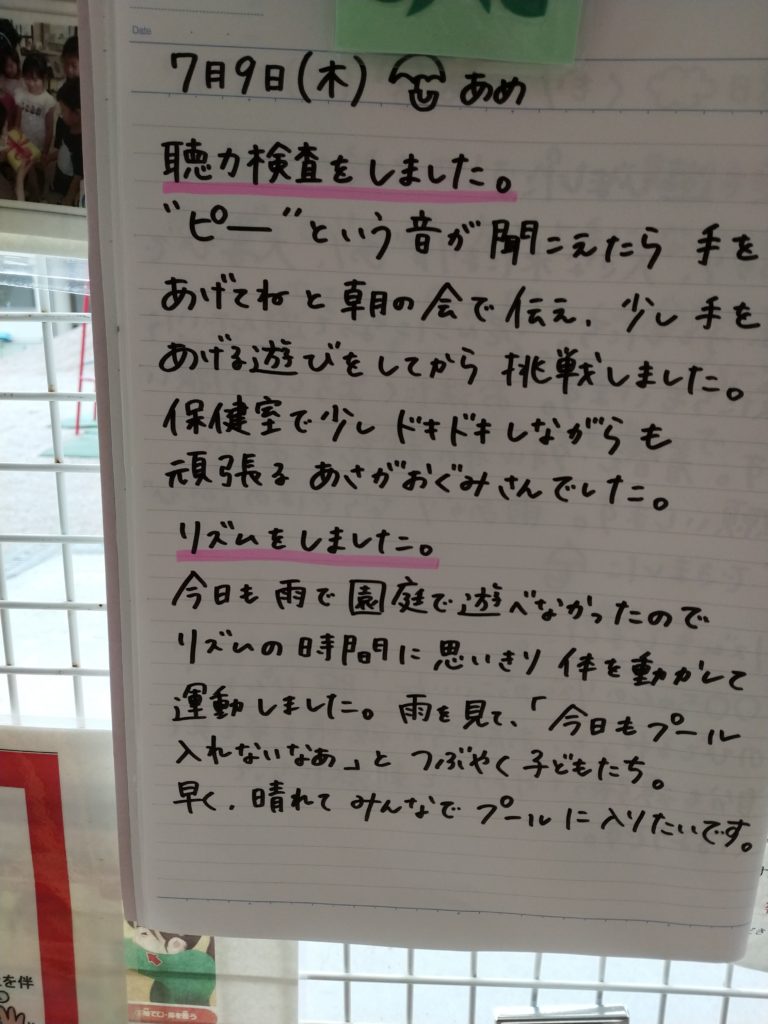 Date
7月9日(木) あめ
聴力検査をしました。
"ピー"という音が聞こえたら 手を
あげてねと朝の会で伝え、少し手を
あげる遊びをしてから 挑戦しました。
保健室で少しドキドキしながらも
頑張る あさがおぐみさんでした。
リズムをしました。
今日も雨で園庭で遊べなかったので
リズムの時間に思いきり体を動かして
運動しました。雨を見て、「今日もプール
入れないなぁ」と つぶやく子どもたち。
早く、晴れて みんなで プールに入りたいです。
を伴